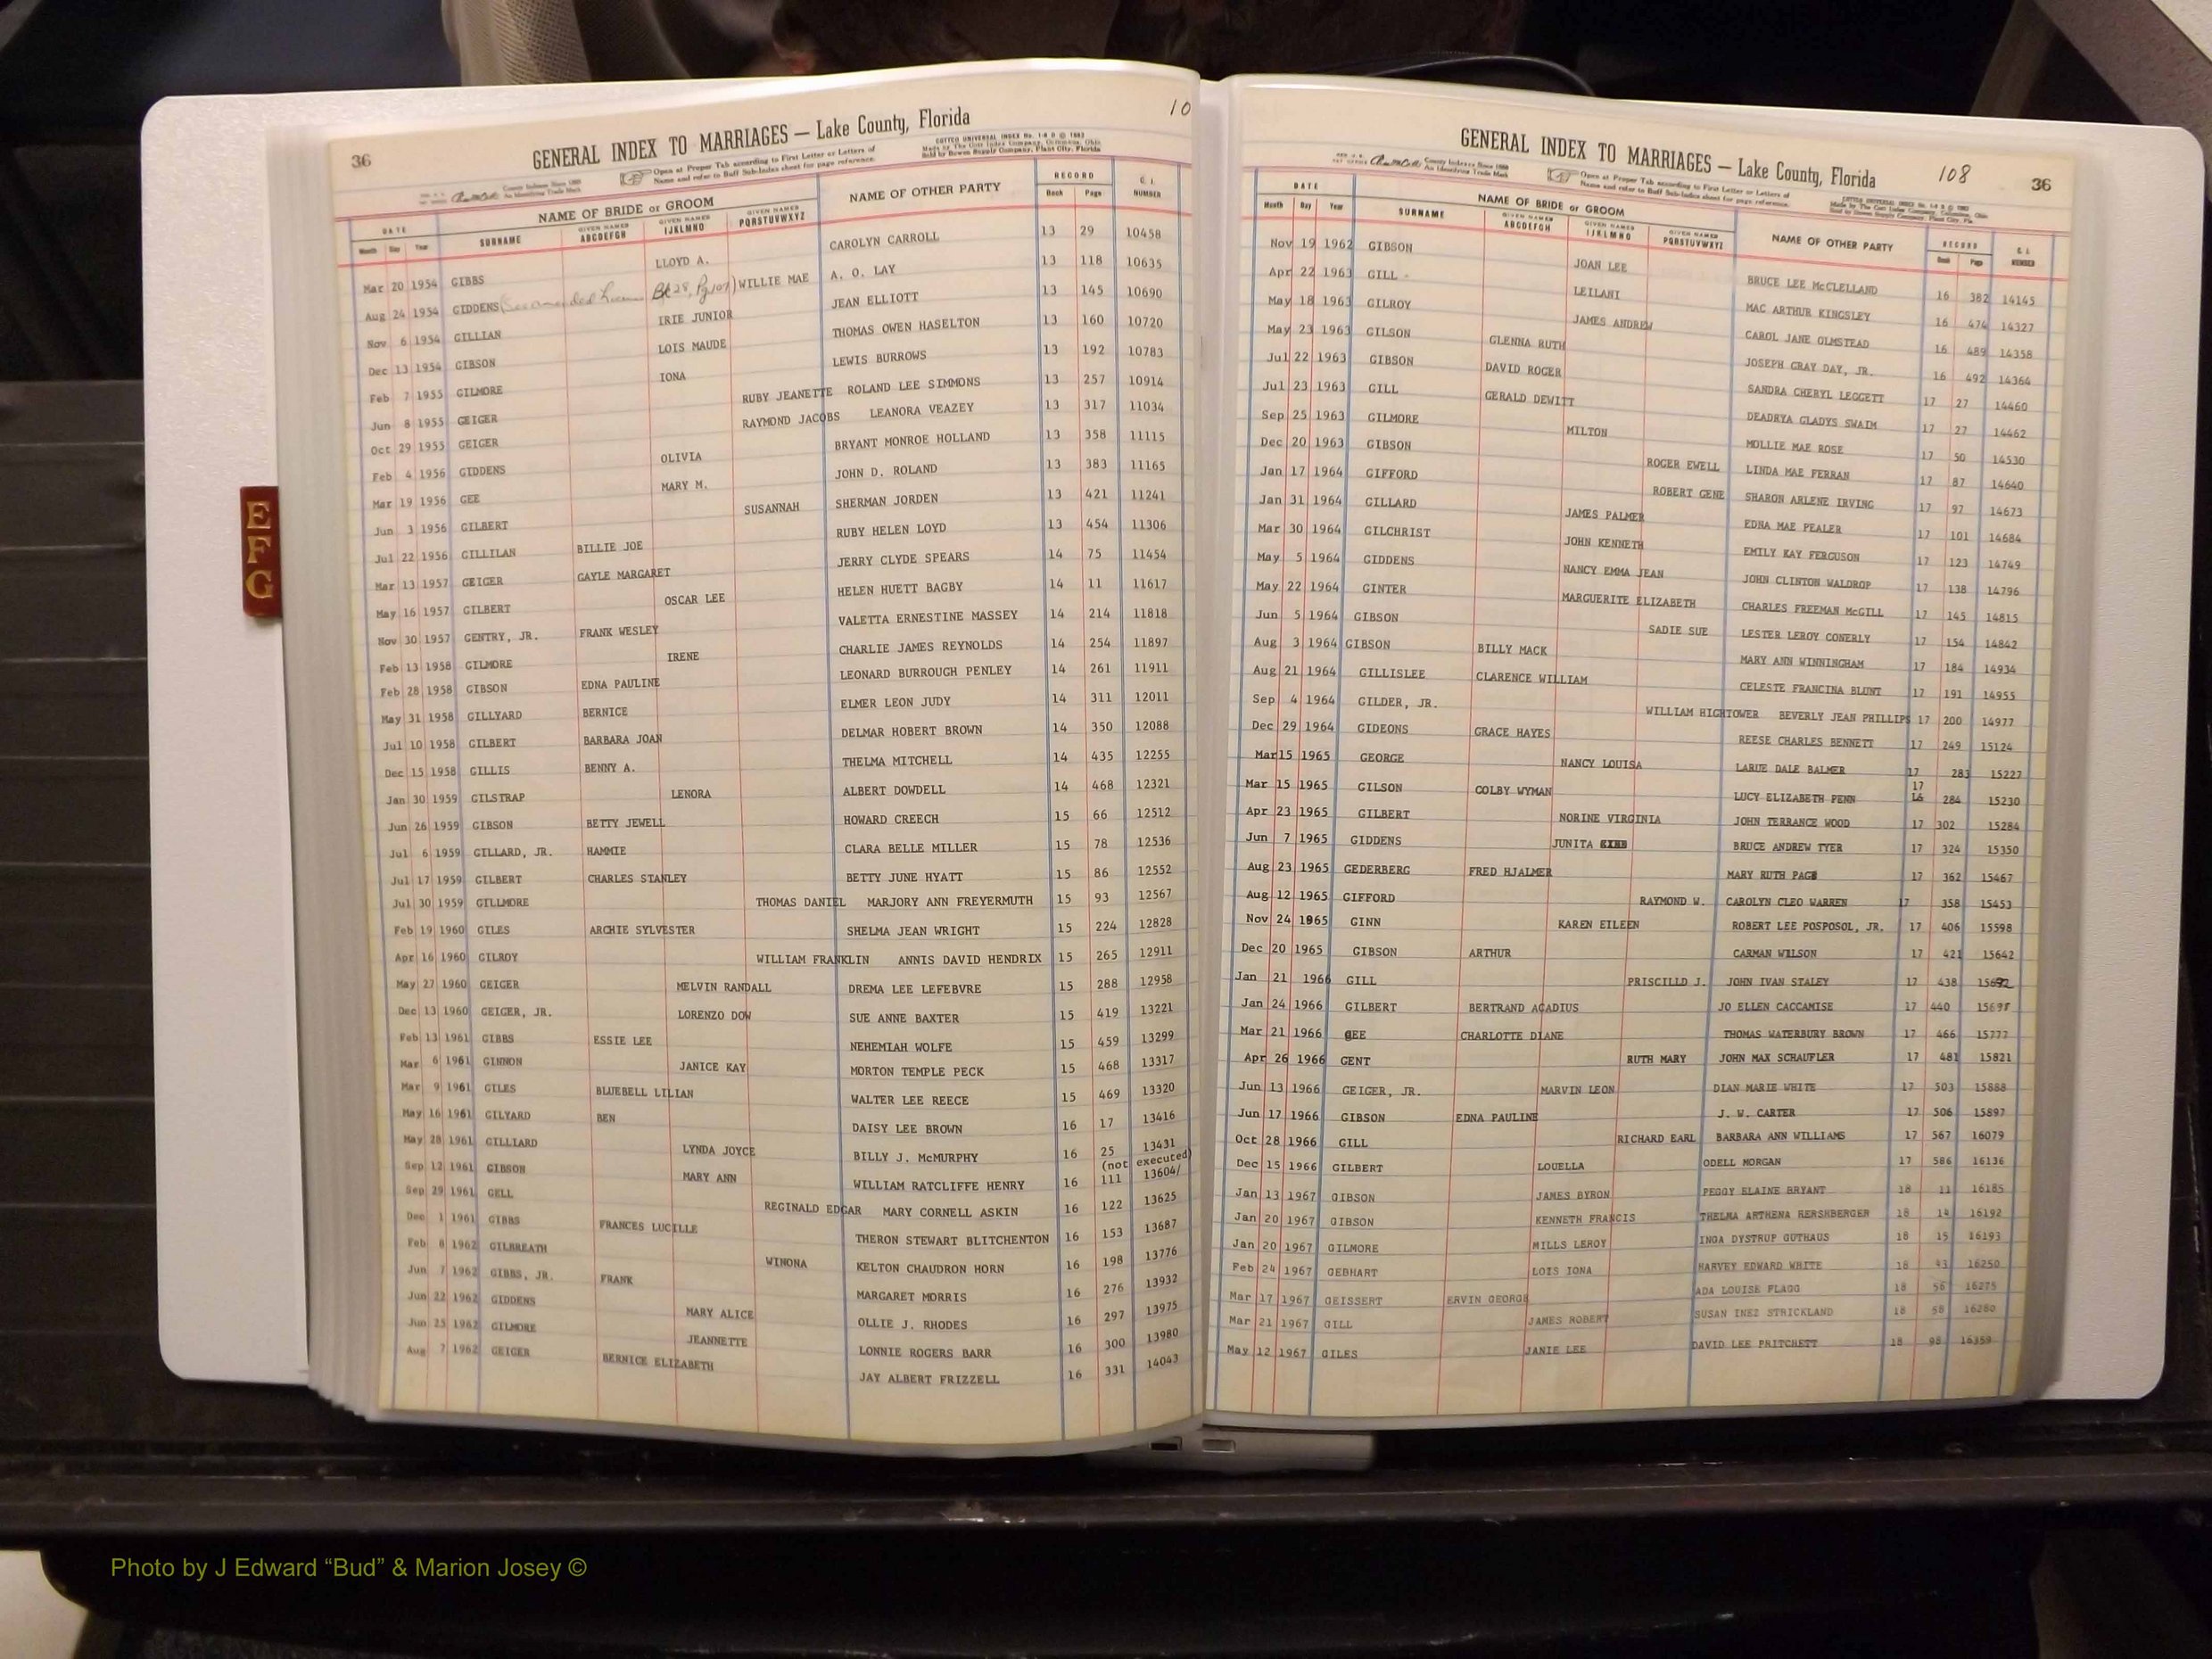 10
36
GENERAL INDEX TO MARRIAGES — Lake County, Florida
COTTCO UNIVERSAL INDEX No. 1-8 D © 1953
Made by The Cott Index Company, Columbus, Ohio
Sold by Bowen Supply Company, Plant City, Florida
County Indexes Since 1888
An Identifying Trade Mark
Open at Proper Tab according to First Letter or Letters of
Name and refer to Buff Sub-Index sheet for page reference.
DATE NAME OF BRIDE or GROOM NAME OF OTHER PARTY RECORD C. I. NUMBER
Month Day Year SURNAME GIVEN NAMES ABCDEFGH GIVEN NAMES IJKLMNO GIVEN NAMES PQRSTUVWXYZ Book Page
Mar 20 1954 GIBBS LLOYD A. CAROLYN CARROLL 13 29 10458
Aug 24 1954 GIDDENS (See amended license Bk 28, Pg 107) WILLIE MAE A. O. LAY 13 118 10635
Nov 6 1954 GILLIAN IRIE JUNIOR JEAN ELLIOTT 13 145 10690
Dec 13 1954 GIBSON LOIS MAUDE THOMAS OWEN HASELTON 13 160 10720
Feb 7 1955 GILMORE IONA LEWIS BURROWS 13 192 10783
Jun 8 1955 GEIGER RUBY JEANETTE ROLAND LEE SIMMONS 13 257 10914
Oct 29 1955 GEIGER RAYMOND JACOBS LEANORA VEAZEY 13 317 11034
Feb 4 1956 GIDDENS OLIVIA BRYANT MONROE HOLLAND 13 358 11115
Mar 19 1956 GEE MARY M. JOHN D. ROLAND 13 383 11165
Jun 3 1956 GILBERT SUSANNAH SHERMAN JORDEN 13 421 11241
Jul 22 1956 GILLILAN BILLIE JOE RUBY HELEN LOYD 13 454 11306
Mar 13 1957 GEIGER GAYLE MARGARET JERRY CLYDE SPEARS 14 75 11454
May 16 1957 GILBERT OSCAR LEE HELEN HUETT BAGBY 14 11 11617
Nov 30 1957 GENTRY, JR. FRANK WESLEY VALETTA ERNESTINE MASSEY 14 214 11818
Feb 13 1958 GILMORE IRENE CHARLIE JAMES REYNOLDS 14 254 11897
Feb 28 1958 GIBSON EDNA PAULINE LEONARD BURROUGH PENLEY 14 261 11911
May 31 1958 GILLYARD BERNICE ELMER LEON JUDY 14 311 12011
Jul 10 1958 GILBERT BARBARA JOAN DELMAR HOBERT BROWN 14 350 12088
Dec 15 1958 GILLIS BENNY A. THELMA MITCHELL 14 435 12255
Jan 30 1959 GILSTRAP LENORA ALBERT DOWDELL 14 468 12321
Jun 26 1959 GIBSON BETTY JEWELL HOWARD CREECH 15 66 12512
Jul 6 1959 GILLARD, JR. HAMMIE CLARA BELLE MILLER 15 78 12536
Jul 17 1959 GILBERT CHARLES STANLEY BETTY JUNE HYATT 15 86 12552
Jul 30 1959 GILLMORE THOMAS DANIEL MARJORY ANN FREYERMUTH 15 93 12567
Feb 19 1960 GILES ARCHIE SYLVESTER SHELMA JEAN WRIGHT 15 224 12828
Apr 16 1960 GILROY WILLIAM FRANKLIN ANNIS DAVID HENDRIX 15 265 12911
May 27 1960 GEIGER MELVIN RANDALL DREMA LEE LEFEBVRE 15 288 12958
Dec 13 1960 GEIGER, JR. LORENZO DOW SUE ANNE BAXTER 15 419 13221
Feb 13 1961 GIBBS ESSIE LEE NEHEMIAH WOLFE 15 459 13299
Mar 6 1961 GINNON JANICE KAY MORTON TEMPLE PECK 15 468 13317
Mar 9 1961 GILES BLUEBELL LILIAN WALTER LEE REECE 15 469 13320
May 16 1961 GILYARD BEN DAISY LEE BROWN 16 17 13416
May 28 1961 GILLIARD LYNDA JOYCE BILLY J. McMURPHY 16 25 13431
(not executed)
Sep 12 1961 GIBSON MARY ANN WILLIAM RATCLIFFE HENRY 16 111 13604/
Sep 29 1961 GELL REGINALD EDGAR MARY CORNELL ASKIN 16 122 13625
Dec 1 1961 GIBBS FRANCES LUCILLE THERON STEWART BLITCHENTON 16 153 13687
Feb 8 1962 GILBREATH WINONA KELTON CHAUDRON HORN 16 198 13776
Jun 7 1962 GIBBS, JR. FRANK MARGARET MORRIS 16 276 13932
Jun 22 1962 GIDDENS MARY ALICE OLLIE J. RHODES 16 297 13975
Jun 25 1962 GILMORE JEANNETTE LONNIE ROGERS BARR 16 300 13980
Aug 7 1962 GEIGER BERNICE ELIZABETH JAY ALBERT FRIZZELL 16 331 14043
GENERAL INDEX TO MARRIAGES — Lake County, Florida
108
36
County Indexes Since 1888
An Identifying Trade Mark
Open at Proper Tab according to First Letter or Letters of
Name and refer to Buff Sub-Index sheet for page reference.
DATE NAME OF BRIDE or GROOM NAME OF OTHER PARTY RECORD C. I. NUMBER
Month Day Year SURNAME GIVEN NAMES ABCDEFGH GIVEN NAMES IJKLMNO GIVEN NAMES PQRSTUVWXYZ Book Page
Nov 19 1962 GIBSON JOAN LEE BRUCE LEE McCLELLAND 16 382 14145
Apr 22 1963 GILL LEILANI MAC ARTHUR KINGSLEY 16 474 14327
May 18 1963 GILROY JAMES ANDREW CAROL JANE OLMSTEAD 16 489 14358
May 23 1963 GILSON GLENNA RUTH JOSEPH GRAY DAY, JR. 16 492 14364
Jul 22 1963 GIBSON DAVID ROGER SANDRA CHERYL LEGGETT 17 27 14460
Jul 23 1963 GILL GERALD DEWITT DEADRYA GLADYS SWAIM 17 27 14462
Sep 25 1963 GILMORE MILTON MOLLIE MAE ROSE 17 50 14530
Dec 20 1963 GIBSON ROGER EWELL LINDA MAE FERRAN 17 87 14640
Jan 17 1964 GIFFORD ROBERT GENE SHARON ARLENE IRVING 17 97 14673
Jan 31 1964 GILLARD JAMES PALMER EDNA MAE PEALER 17 101 14684
Mar 30 1964 GILCHRIST JOHN KENNETH EMILY KAY FERGUSON 17 123 14749
May 5 1964 GIDDENS NANCY EMMA JEAN JOHN CLINTON WALDROP 17 138 14796
May 22 1964 GINTER MARGUERITE ELIZABETH CHARLES FREEMAN McGILL 17 145 14815
Jun 5 1964 GIBSON SADIE SUE LESTER LEROY CONERLY 17 154 14842
Aug 3 1964 GIBSON BILLY MACK MARY ANN WINNINGHAM 17 184 14934
Aug 21 1964 GILLISLEE CLARENCE WILLIAM CELESTE FRANCINA BLUNT 17 191 14955
Sep 4 1964 GILDER, JR. WILLIAM HIGHTOWER BEVERLY JEAN PHILLIPS 17 200 14977
Dec 29 1964 GIDEONS GRACE HAYES REESE CHARLES BENNETT 17 249 15124
Mar 15 1965 GEORGE NANCY LOUISA LARUE DALE BALMER 17 283 15227
Mar 15 1965 GILSON COLBY WYMAN LUCY ELIZABETH PENN 17 16 284 15230
Apr 23 1965 GILBERT NORINE VIRGINIA JOHN TERRANCE WOOD 17 302 15284
Jun 7 1965 GIDDENS JUNITA BRUCE ANDREW TYER 17 324 15350
Aug 23 1965 GEDERBERG FRED HJALMER MARY RUTH PAGE 17 362 15467
Aug 12 1965 GIFFORD RAYMOND W. CAROLYN CLEO WARREN 17 358 15453
Nov 24 1965 GINN KAREN EILEEN ROBERT LEE POSPOSOL, JR. 17 406 15598
Dec 20 1965 GIBSON ARTHUR CARMAN WILSON 17 421 15642
Jan 21 1966 GILL PRISCILLD J. JOHN IVAN STALEY 17 438 15692
Jan 24 1966 GILBERT BERTRAND ACADIUS JO ELLEN CACCAMISE 17 440 15695
Mar 21 1966 GEE CHARLOTTE DIANE THOMAS WATERBURY BROWN 17 466 15777
Apr 26 1966 GENT RUTH MARY JOHN MAX SCHAUFLER 17 481 15821
Jun 13 1966 GEIGER, JR. MARVIN LEON DIAN MARIE WHITE 17 503 15888
Jun 17 1966 GIBSON EDNA PAULINE J. W. CARTER 17 506 15897
Oct 28 1966 GILL RICHARD EARL BARBARA ANN WILLIAMS 17 567 16079
Dec 15 1966 GILBERT LOUELLA ODELL MORGAN 17 586 16136
Jan 13 1967 GIBSON JAMES BYRON PEGGY ELAINE BRYANT 18 11 16185
Jan 20 1967 GIBSON KENNETH FRANCIS THELMA ARTHENA HERSHBERGER 18 14 16192
Jan 20 1967 GILMORE MILLS LEROY INGA DYSTRUP GUTHAUS 18 15 16193
Feb 24 1967 GEBHART LOIS IONA HARVEY EDWARD WHITE 18 43 16250
Mar 17 1967 GEISSERT ERVIN GEORGE ADA LOUISE FLAGG 18 56 16275
Mar 21 1967 GILL JAMES ROBERT SUSAN INEZ STRICKLAND 18 58 16280
May 12 1967 GILES JANIE LEE DAVID LEE PRITCHETT 18 98 16359
E
F
G
Photo by J Edward “Bud” & Marion Josey ©